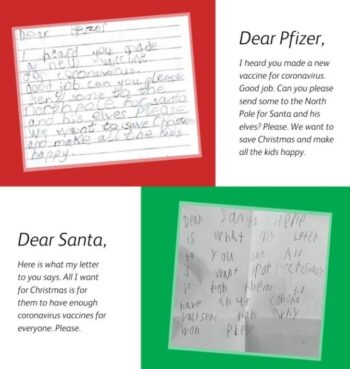 Dear Pfizer
I heard you made
a new vaccine
for coronavirus.
Good job can you please
send some to the
North Pole for santa
and his elves please
We want to save Christmas
and make all the kids
happy.
Dear Pfizer,
I heard you made a new
vaccine for coronavirus.
Good job. Can you please
send some to the North
Pole for Santa and his
elves? Please. We want to
save Christmas and make
all the kids happy.
Dear Santa,
Here is what my letter
to you says. All I want
for Christmas is for
them to have enough
coronavirus vaccines for
everyone. Please.
Dear Santa Here
is what my
to you
I want
is for them to
have